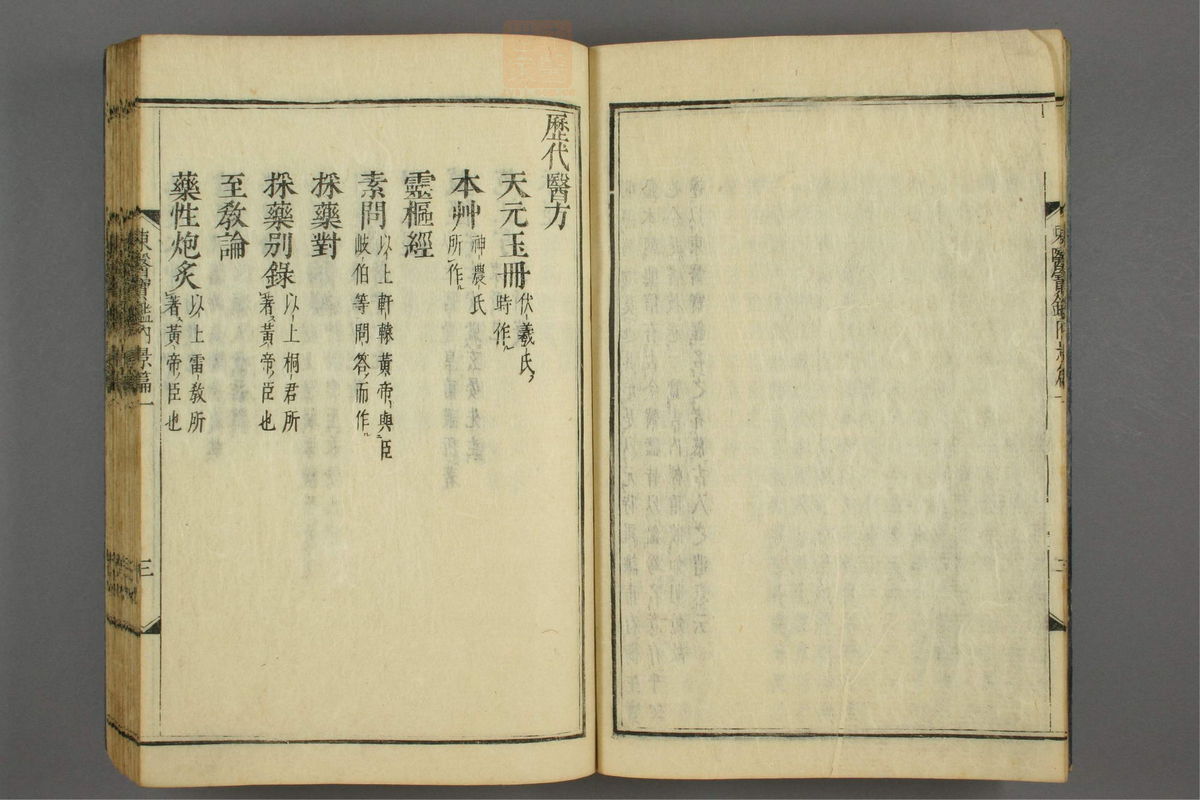 歷代醫方
天元玉冊 伏羲氏時作
本艸 神農氏所作
靈樞經
素問 以上軒轅黃帝與臣岐伯等問答而作
採藥對
採藥別錄 以上桐君所著黃帝臣也
至教論
藥性炮炙 以上雷敎所著黃帝臣也
東醫寶鑑內景篇一
三